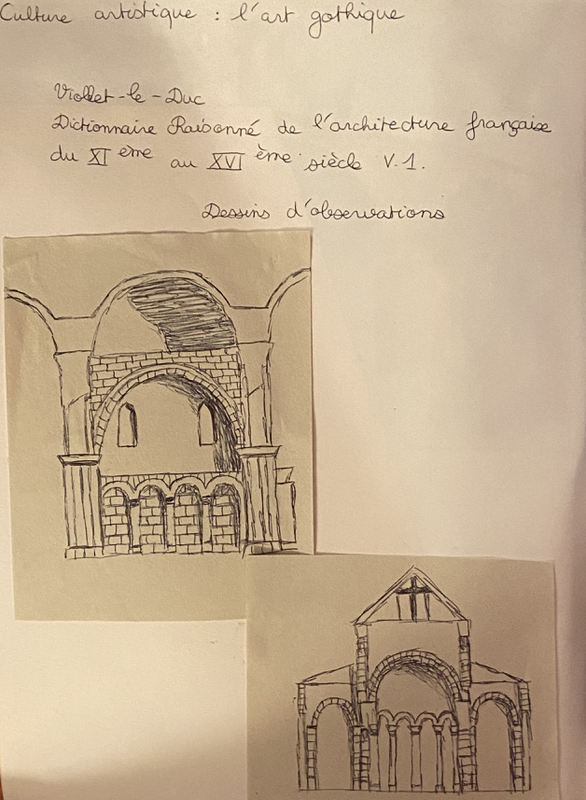 Culture artistique : l'art gothique
Viollet-le-Duc
Dictionnaire Raisonné de l'architecture française
du XI ème au XVI ème siècle V.1.
Dessins d'observations